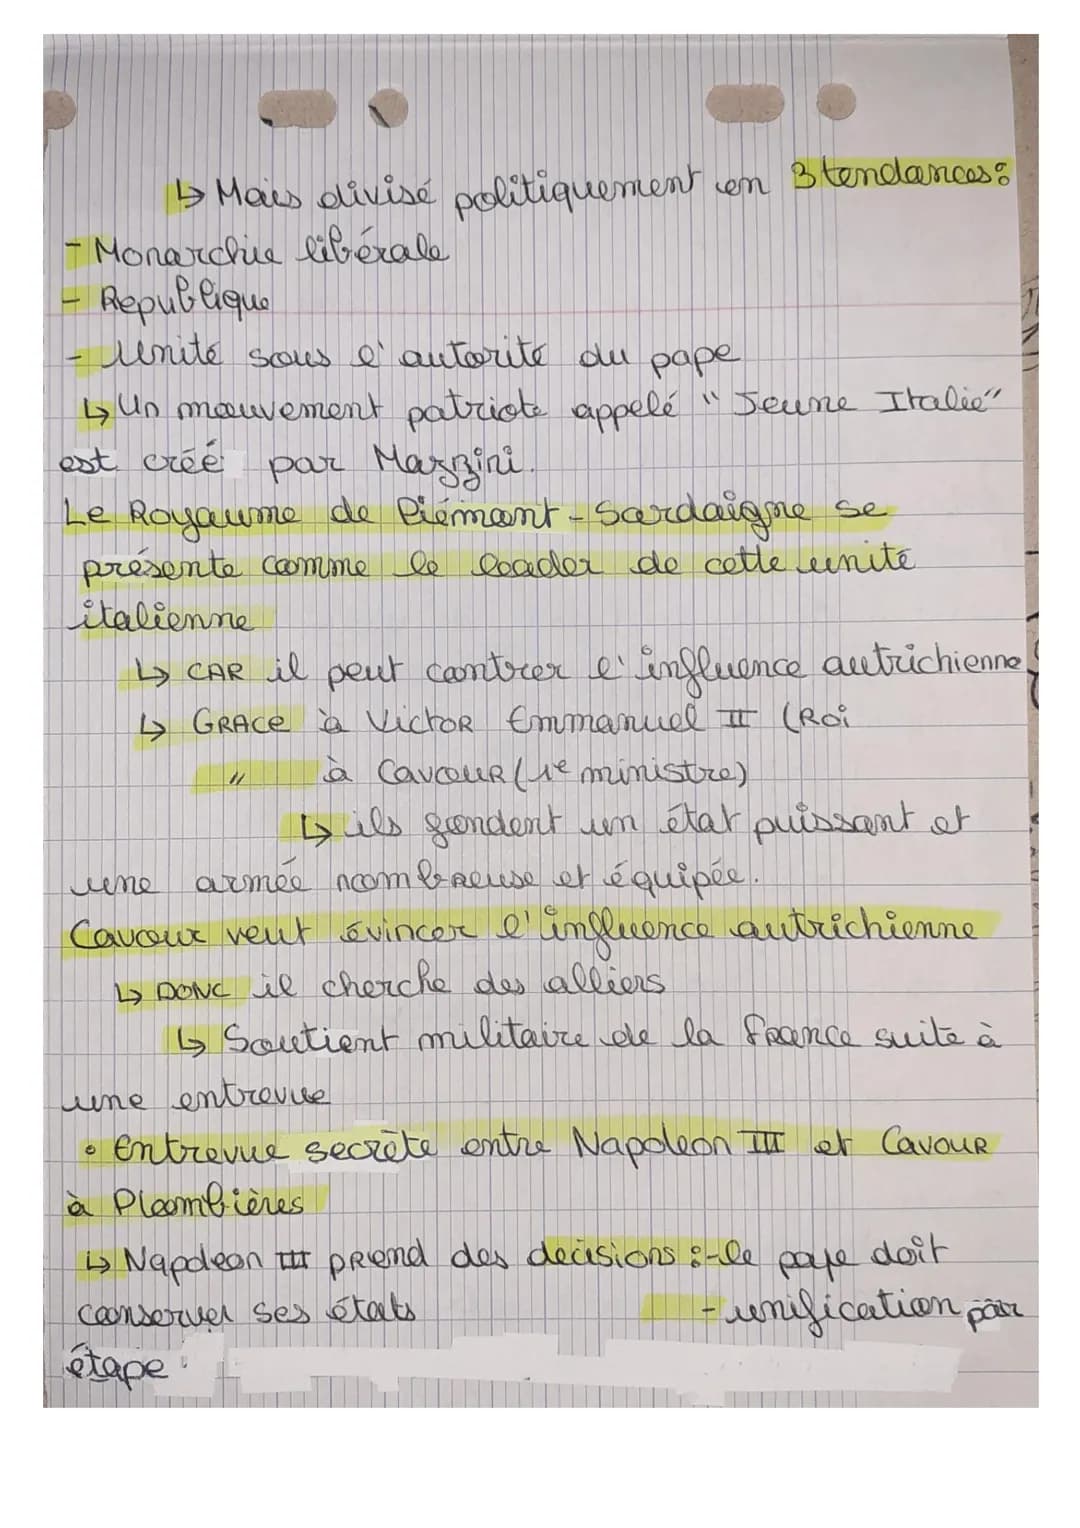 ↳ Mais divisé politiquement en 3 tendances :
- Monarchie libérale
- Republique
- Unité sous l'autorité du pape
↳ Un mouvement patriote appelé "Jeune Italie"
est créé par Mazzini.
Le Royaume de Piémont-Sardaigne se
présente comme le leader de cette unité
italienne
↳ CAR il peut contrer l'influence autrichienne
↳ GRACE à Victor Emmanuel II (Roi
" à Cavour (1e ministre)
↳ ils fondent un état puissant et
une armée nombreuse et équipée.
Cavour veut évincer l'influence autrichienne
↳ DONC il cherche des alliers
↳ Soutient militaire de la france suite à
une entrevue
• Entrevue secrète entre Napoleon III et Cavour
à Plombières
↳ Napoleon III prend des decisions : - le pape doit
conserver ses états - unification par
étape